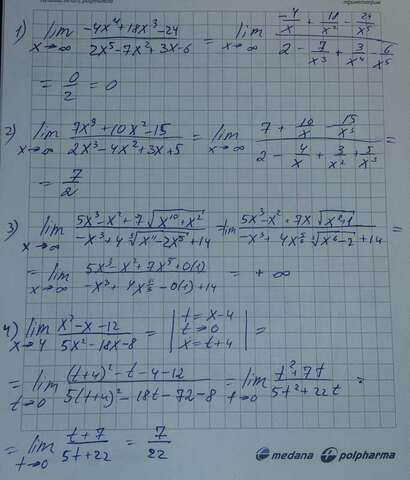 1) lim x→∞ (-4x⁴+18x³-24)/(2x⁵-7x²+3x-6) = lim x→∞ (-4/x + 18/x² - 24/x⁵)/(2 - 7/x³ + 3/x⁴ - 6/x⁵) =
= 0/2 = 0
2) lim x→∞ (7x³+10x²-15)/(2x³-4x²+3x+5) = lim x→∞ (7 + 10/x - 15/x³)/(2 - 4/x + 3/x² + 5/x³) =
= 7/2
3) lim x→∞ (5x³-x²+7√(x¹⁰+x²))/(-x³+4 -2x⁵+14) = lim (5x³-x²+7x)/(-x³+4x +14) =
= lim x→∞ (5x³-x²+7x⁵+0(1))/(-x³+4x -0(1)+14) = +∞
4) lim x→4 (x²-x-12)/(5x²-18x-8) = | t=x-4 t→0 x=t+4 | =
= lim t→0 ((t+4)²-t-4-12)/(5(t+4)²-18t-72-8) = lim t→0 (t²+7t)/(5t²+22t) =
= lim t→0 (t+7)/(5t+22) = 7/22
medana polpharma